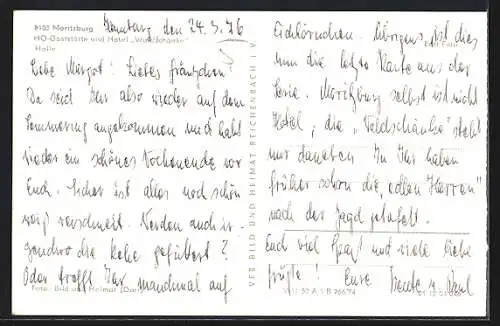 8105 Moritzburg
Hamburg den 24.3.76
HO-Gaststätte und Hotel „Waldschänke"
Halle
Liebe Margot! Liebes Fränzchen!
Da seid Ihr also wieder auf dem
Semmering angekommen und habt
wieder ein schönes Wochenende vor
Euch. Sicher ist alles noch schön
weiß verschneit. Werden auch ir-
gendwo die Rehe gefüttert?
Oder trefft Ihr manchmal auf
Foto: Bild und Heimat
VEB BILD UND HEIMAT REICHENBACH I. V.
Eichhörnchen. Übrigens, ist dies
nun die letzte Karte aus der
Serie. Moritzburg selbst ist nicht
Hotel, die „Waldschänke" steht
nur daneben. In ihr haben
früher schon die „edlen Herren"
nach der Jagd getafelt.
Euch viel Spaß und viele liebe
Grüße! Eure